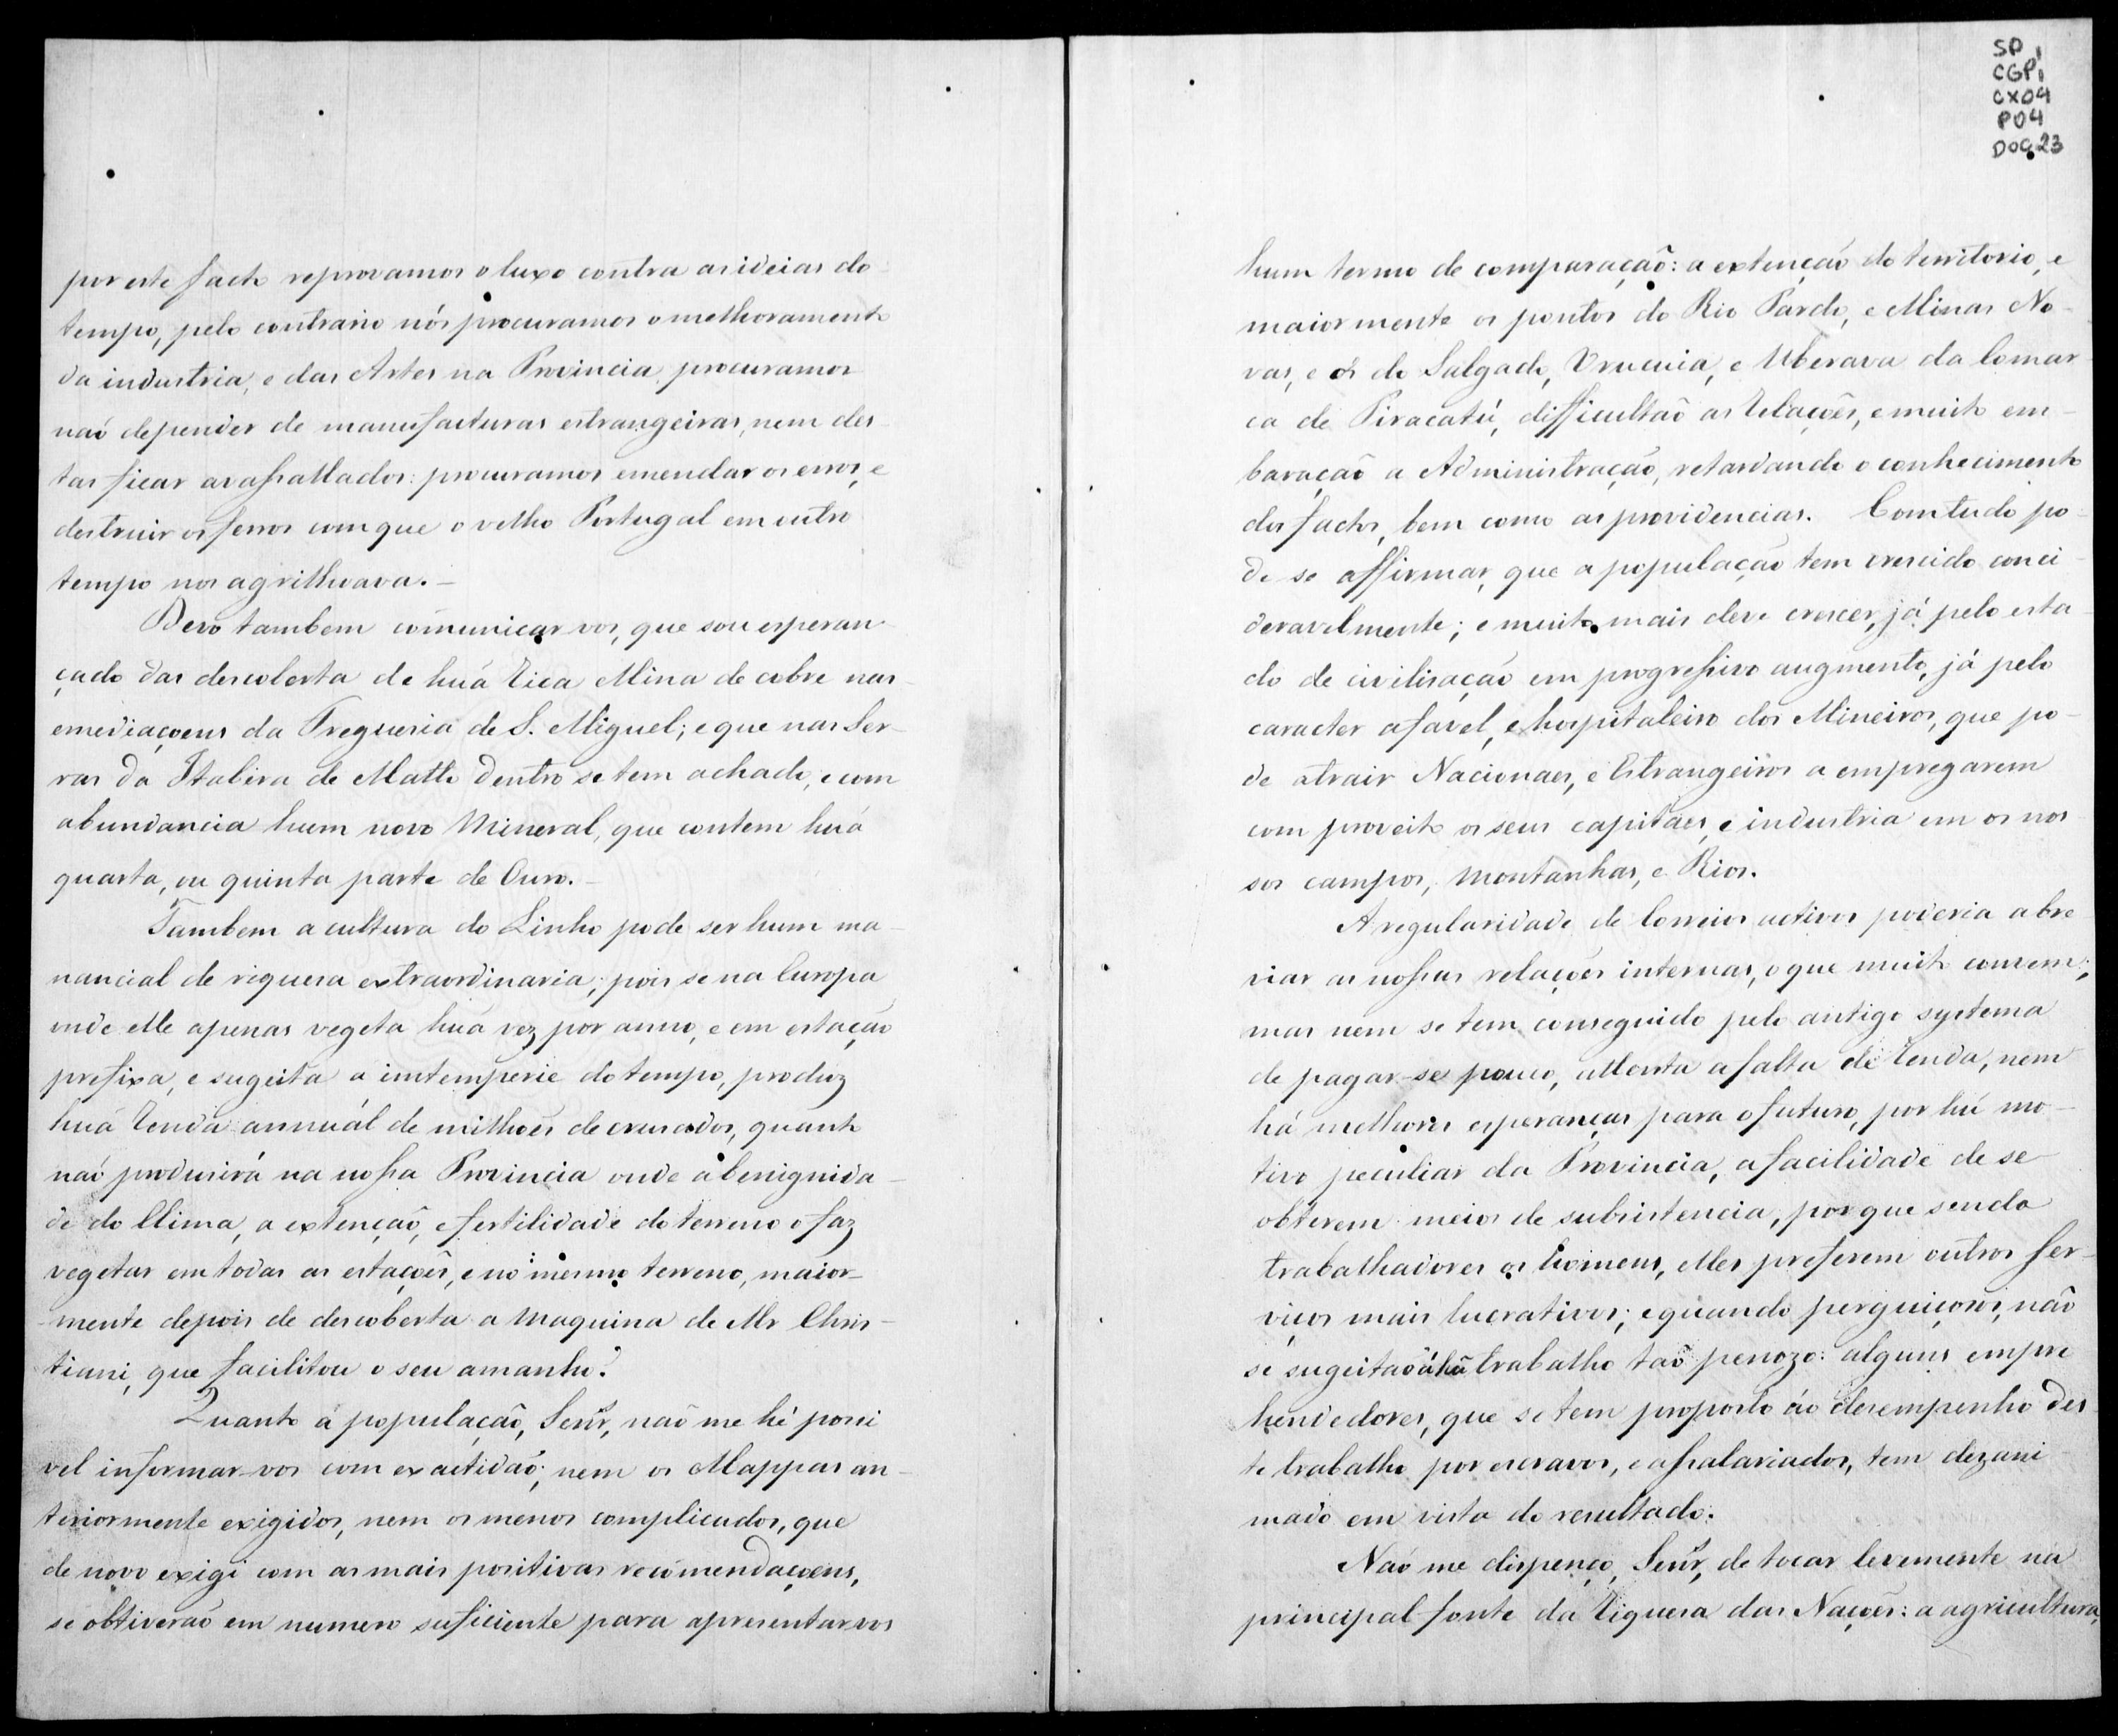 por este facto reprovamos o luxo contra as ideias do
tempo, pelo contrario nós procuramos o melhoramento
da industria, e das Artes na Provincia, procuramos
naõ depender de manufacturas estrangeiras, nem des-
tas ficar avassallados: procuramos emendar os erros, e
destruir os ferros com que o velho Portugal em outro
tempo nos agrilhoava.—
Devo tambem cõmunicar vos, que sou esperan-
çado das descoberta de huá rica Mina de cobre nas
emediaçoens da Freguesia de S. Miguel; e que nas Ser-
ras da Itabira de Matto Dentro se tem achado, e com
abundancia hum novo Mineral, que contem huá
quarta, ou quinta parte de Ouro.—
Tambem a cultura do Linho pode ser hum ma-
nancial de riquesa extraordinaria; pois se na Europa
onde elle apenas vegeta huá vez por anno, e em estaçaõ
prefixa, e sugeita a imtemperie do tempo, produz
huá renda annuál de milhoẽs de crusados, quanto
naõ produsirá na nossa Provincia onde a benignida-
de do Clima, a extençaõ, e fertilidade do terreno o faz
vegetar em todas as estaçoẽs, e no mesmo terreno, maior-
mente depois de descoberta a Maquina de Mr Chris-
tiani, que facilitou o seu amanho?
Quanto á populaçaõ, Senr.s, naõ me hé possi
vel informar-vos com exactidaõ; nem os Mappas an-
teriormente exigidos, nem os menos complicados, que
de novo exigi com as mais positivas recõmendaçoens,
se obtiveraõ em numero suficiente para apresentar vos
SP
CGP1
CX04
P04
DOC.23
hum termo de comparaçaõ: a extençaõ do territorio, e
maiormente os pontos do Rio Pardo, e Minas No-
vas, e os do Salgado, Urucuia, e Uberava da Comar
ca de Piracatú, difficultaõ as relaçoẽs, e muito em-
baraçaõ a Administraçaõ, retardando o conhecimento
dos factos, bem como as providencias. Comtudo po-
de se affirmar, que a populaçaõ tem crescido conci-
deravelmente; e muito mais deve crescer, já pelo esta
do de civilisaçaõ em progressivo augmento, já pelo
caracter afavel, e hospitaleiro dos Mineiros, que po-
de atrair Nacionaes, e Estrangeiros a empregarem
com proveito os seus capitães, e industria em os nos
sos campos, Montanhas, e Rios.
A regularidade de Correios activos poderia abre
viar as nossas relaçoẽs internas, o que muito convem;
mas nem se tem conseguido pelo antigo systema
de pagar-se pouco, attenta a falta de renda, nem
há melhores esperanças para o futuro, por hũ mo-
tivo peculiar da Provincia, a facilidade de se
obterem meios de subsistencia, por que sendo
trabalhadores os homens, elles preferem outros ser-
viços mais lucrativos; e quando perguiçosos, não
se sugeitaõ á hũ trabalho taõ penozo: alguns empre
hendedores, que se tem proposto áo desempenho des
te trabalho por escravos, e assalariados, tem dezani
mado em vista do resultado.
Naõ me dispenço, Senr.s, de tocar levemente na
principal fonte da riquesa das Naçoẽs: a agricultura,